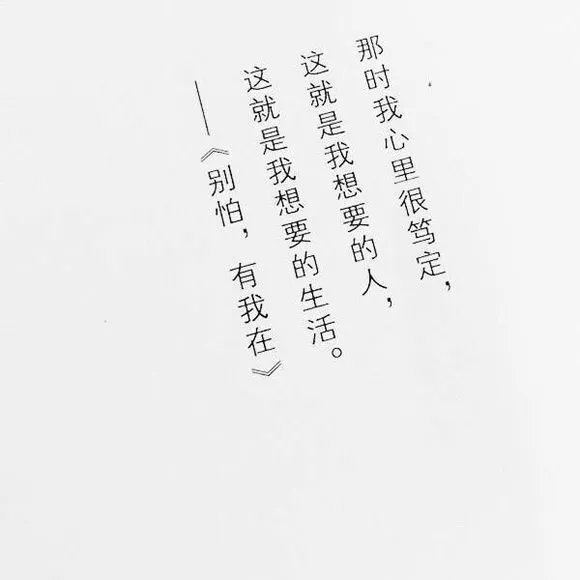 那时我心里很笃定，
这就是我想要的人，
这就是我想要的生活。
——《别怕，有我在》